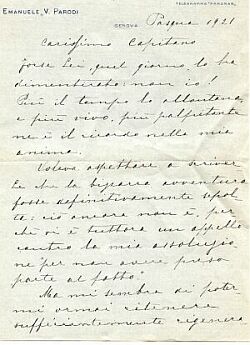 EMANUELE V. PARODI
GENOVA
Pasqua 1921
Carissimo Capitano
forse Lei, quel giorno, lo ha
dimenticato: non io!
Più il tempo lo allontana,
e più vivo, più palpitante
ne è il ricordo nella mia
anima.
Volevo aspettare a scriver
Le che la bizzarra avventura
fosse definitivamente sepol
ta: ciò ancora non è, per
chè vi è tuttora un appello
contro la mia assoluzio
ne "per non aver preso
parte al fatto"
Ma mi sembra di poter
mi ormai ritenere
sufficientemente rigenera